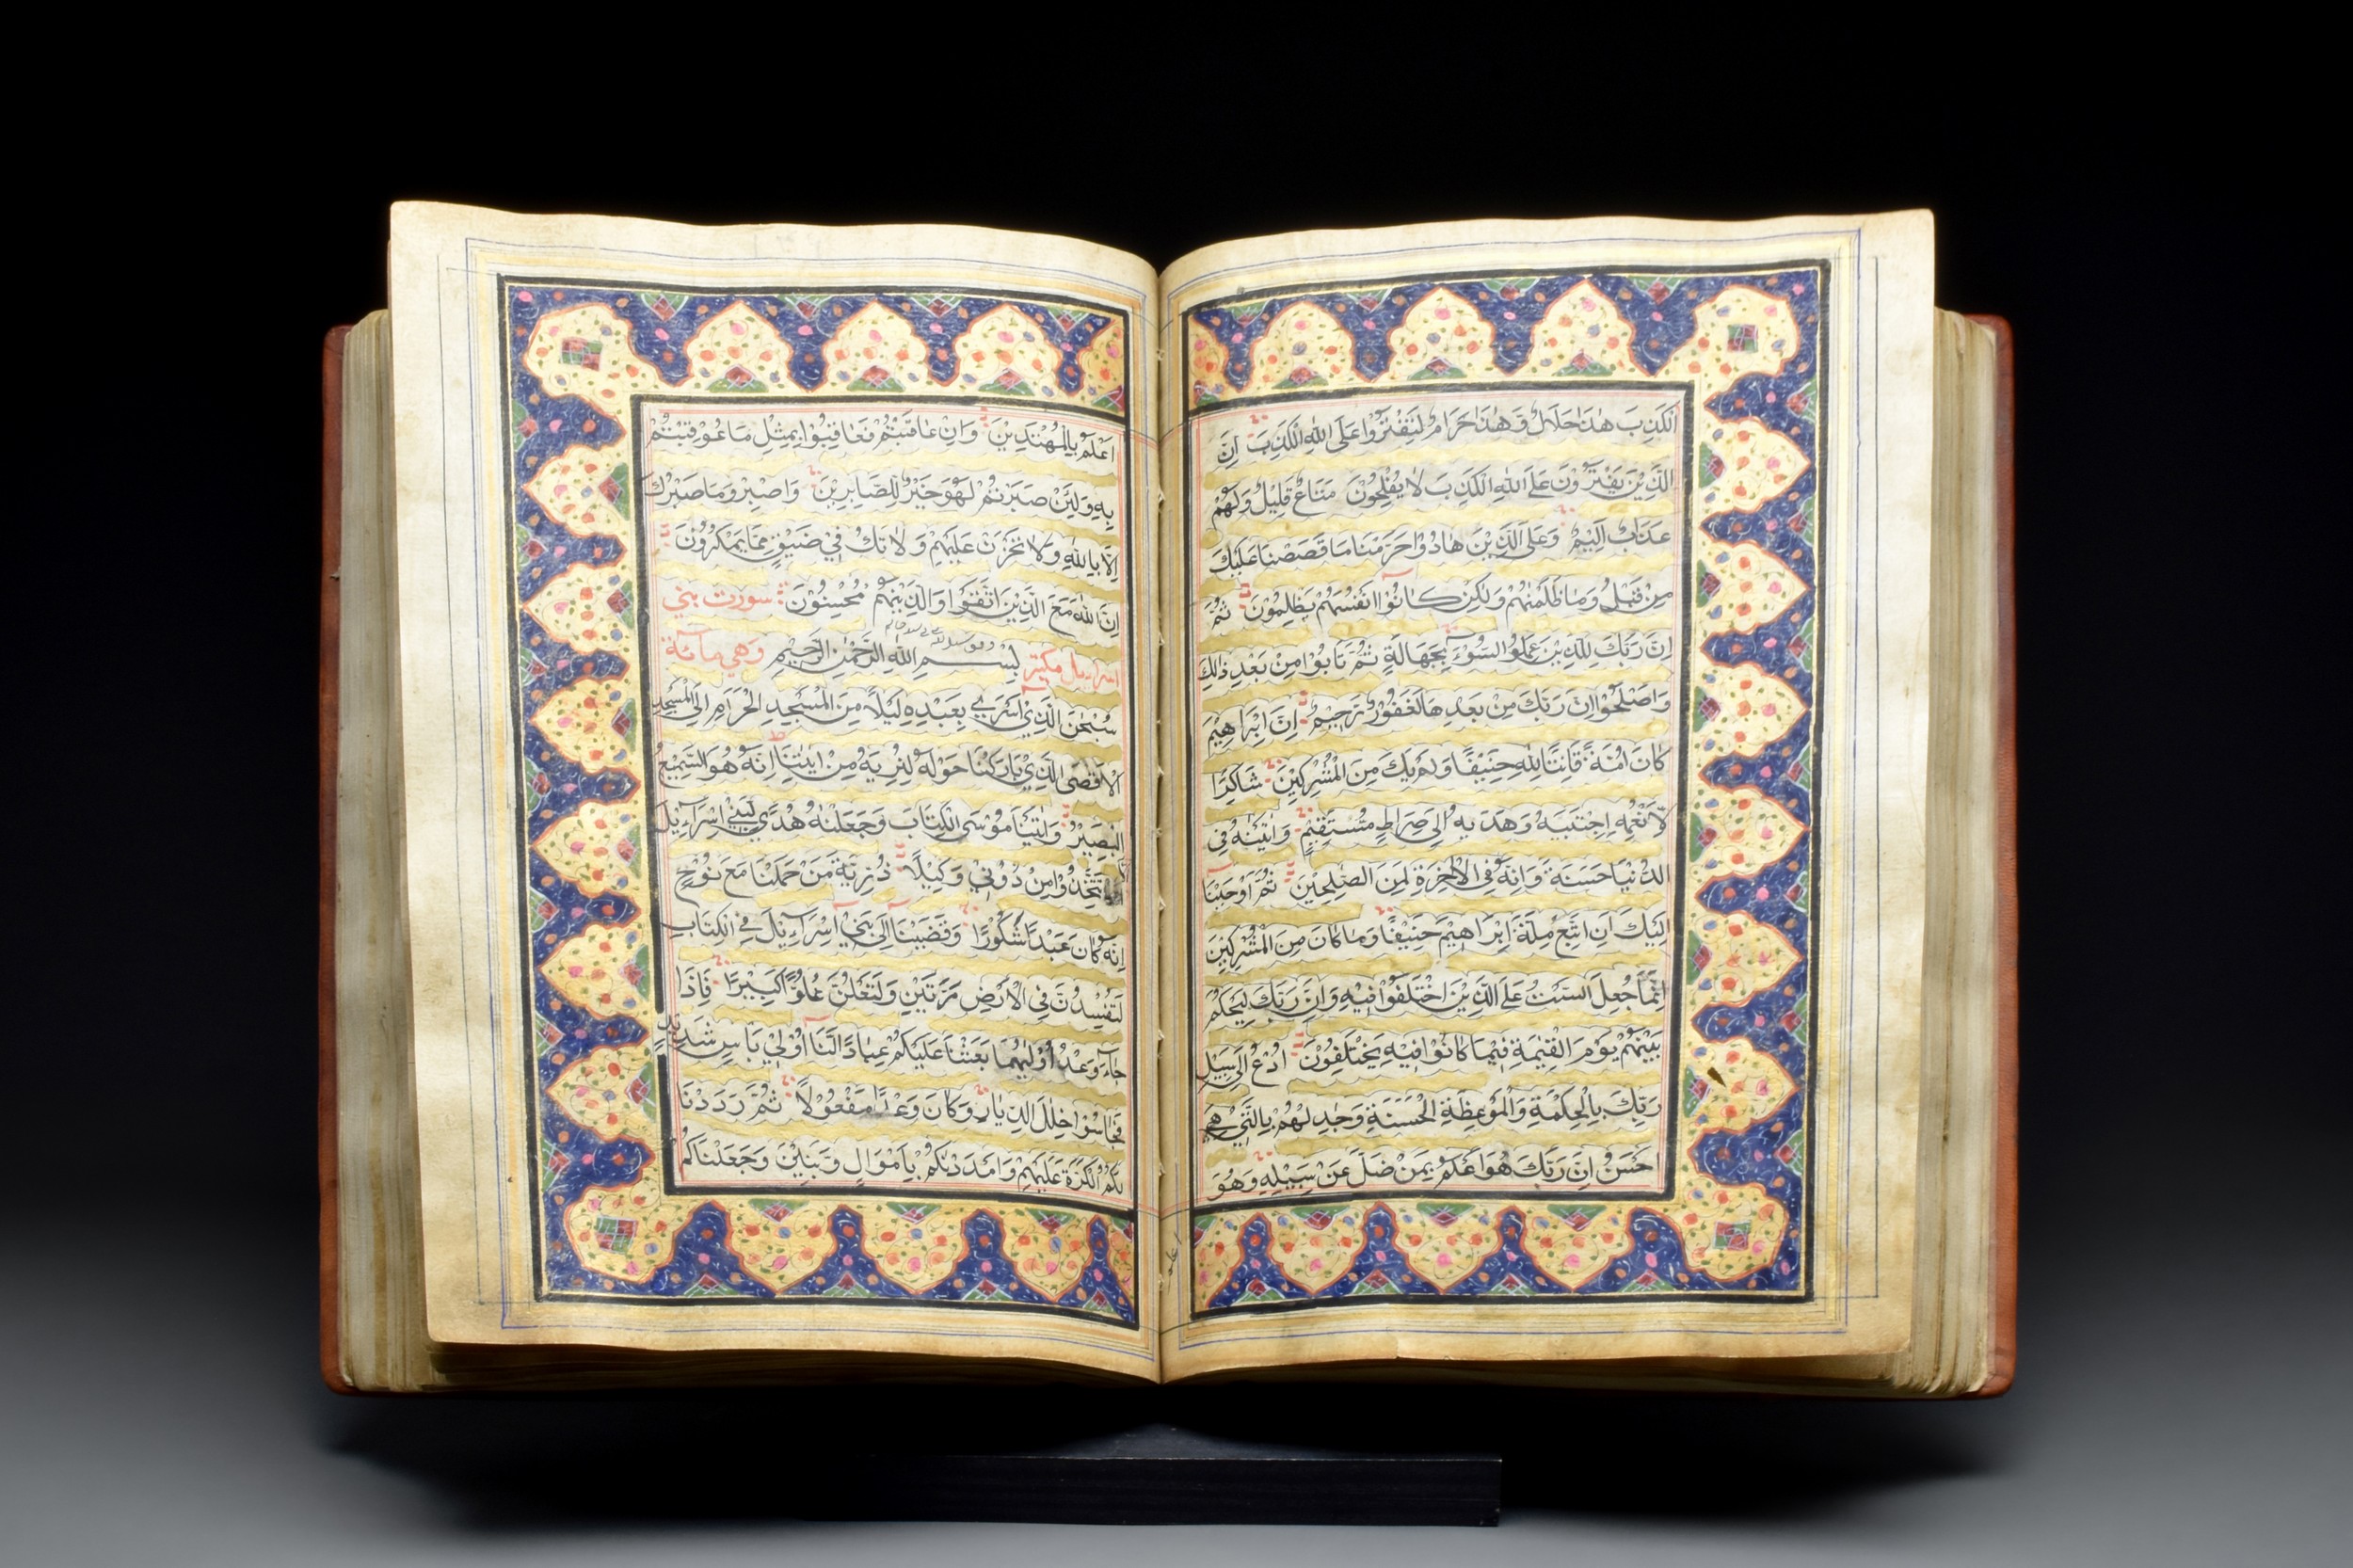 الْكَذِبَ هٰذَا حَلَالٌ وَهٰذَا حَرَامٌ لِتَفْتَرُوا عَلَى اللّٰهِ الْكَذِبَ اِنَّ
الَّذِيْنَ يَفْتَرُوْنَ عَلَى اللّٰهِ الْكَذِبَ لَا يُفْلِحُوْنَ مَتَاعٌ قَلِيْلٌ وَلَهُمْ
عَذَابٌ اَلِيْمٌ وَعَلَى الَّذِيْنَ هَادُوْا حَرَّمْنَا مَا قَصَصْنَا عَلَيْكَ
مِنْ قَبْلُ وَمَا ظَلَمْنٰهُمْ وَلٰكِنْ كَانُوْا اَنْفُسَهُمْ يَظْلِمُوْنَ ثُمَّ
اِنَّ رَبَّكَ لِلَّذِيْنَ عَمِلُوا السُّوْءَ بِجَهَالَةٍ ثُمَّ تَابُوْا مِنْ بَعْدِ ذٰلِكَ
وَاَصْلَحُوْا اِنَّ رَبَّكَ مِنْ بَعْدِهَا لَغَفُوْرٌ رَحِيْمٌ اِنَّ اِبْرَاهِيْمَ
كَانَ اُمَّةً قَانِتًا لِلّٰهِ حَنِيْفًا وَلَمْ يَكُ مِنَ الْمُشْرِكِيْنَ شَاكِرًا
لِاَنْعُمِهِ اِجْتَبٰيهُ وَهَدٰيهُ اِلٰى صِرَاطٍ مُسْتَقِيْمٍ وَاٰتَيْنٰهُ فِي
الدُّنْيَا حَسَنَةً وَاِنَّهُ فِي الْاٰخِرَةِ لَمِنَ الصّٰلِحِيْنَ ثُمَّ اَوْحَيْنَا
اِلَيْكَ اَنِ اتَّبِعْ مِلَّةَ اِبْرَاهِيْمَ حَنِيْفًا وَمَا كَانَ مِنَ الْمُشْرِكِيْنَ
اِنَّمَا جُعِلَ السَّبْتُ عَلَى الَّذِيْنَ اخْتَلَفُوْا فِيْهِ وَاِنَّ رَبَّكَ لَيَحْكُمُ
بَيْنَهُمْ يَوْمَ الْقِيٰمَةِ فِيْمَا كَانُوْا فِيْهِ يَخْتَلِفُوْنَ اُدْعُ اِلٰى سَبِيْلِ
رَبِّكَ بِالْحِكْمَةِ وَالْمَوْعِظَةِ الْحَسَنَةِ وَجَادِلْهُمْ بِالَّتِيْ هِيَ
اَحْسَنُ اِنَّ رَبَّكَ هُوَ اَعْلَمُ بِمَنْ ضَلَّ عَنْ سَبِيْلِهِ وَهُوَ
اَعْلَمُ بِالْمُهْتَدِيْنَ وَاِنْ عَاقَبْتُمْ فَعَاقِبُوْا بِمِثْلِ مَا عُوْقِبْتُمْ
بِهِ وَلَئِنْ صَبَرْتُمْ لَهُوَ خَيْرٌ لِلصَّابِرِيْنَ وَاصْبِرْ وَمَا صَبْرُكَ
اِلَّا بِاللّٰهِ وَلَا تَحْزَنْ عَلَيْهِمْ وَلَا تَكُ فِيْ ضَيْقٍ مِمَّا يَمْكُرُوْنَ
اِنَّ اللّٰهَ مَعَ الَّذِيْنَ اتَّقَوْا وَالَّذِيْنَ هُمْ مُحْسِنُوْنَ سورت بني
اسراءيل مكية بِسْمِ اللّٰهِ الرَّحْمٰنِ الرَّحِيْمِ وهي مائة
سُبْحٰنَ الَّذِيْ اَسْرٰى بِعَبْدِهِ لَيْلًا مِنَ الْمَسْجِدِ الْحَرَامِ اِلَى الْمَسْجِدِ
الْاَقْصَى الَّذِيْ بَارَكْنَا حَوْلَهُ لِنُرِيَهُ مِنْ اٰيٰتِنَا اِنَّهُ هُوَ السَّمِيْعُ
الْبَصِيْرُ وَاٰتَيْنَا مُوْسَى الْكِتَابَ وَجَعَلْنٰهُ هُدًى لِبَنِيْ اِسْرَاءِيْلَ
اَلَّا تَتَّخِذُوْا مِنْ دُوْنِيْ وَكِيْلًا ذُرِّيَّةَ مَنْ حَمَلْنَا مَعَ نُوْحٍ
اِنَّهُ كَانَ عَبْدًا شَكُوْرًا وَقَضَيْنَا اِلٰى بَنِيْ اِسْرَاءِيْلَ فِي الْكِتَابِ
لَتُفْسِدُنَّ فِي الْاَرْضِ مَرَّتَيْنِ وَلَتَعْلُنَّ عُلُوًّا كَبِيْرًا فَاِذَا
جَاءَ وَعْدُ اُوْلٰيهُمَا بَعَثْنَا عَلَيْكُمْ عِبَادًا لَنَا اُوْلِيْ بَاْسٍ شَدِيْدٍ
فَجَاسُوْا خِلٰلَ الدِّيَارِ وَكَانَ وَعْدًا مَفْعُوْلًا ثُمَّ رَدَدْنَا
لَكُمُ الْكَرَّةَ عَلَيْهِمْ وَاَمْدَدْنٰكُمْ بِاَمْوَالٍ وَبَنِيْنَ وَجَعَلْنَاكُمْ